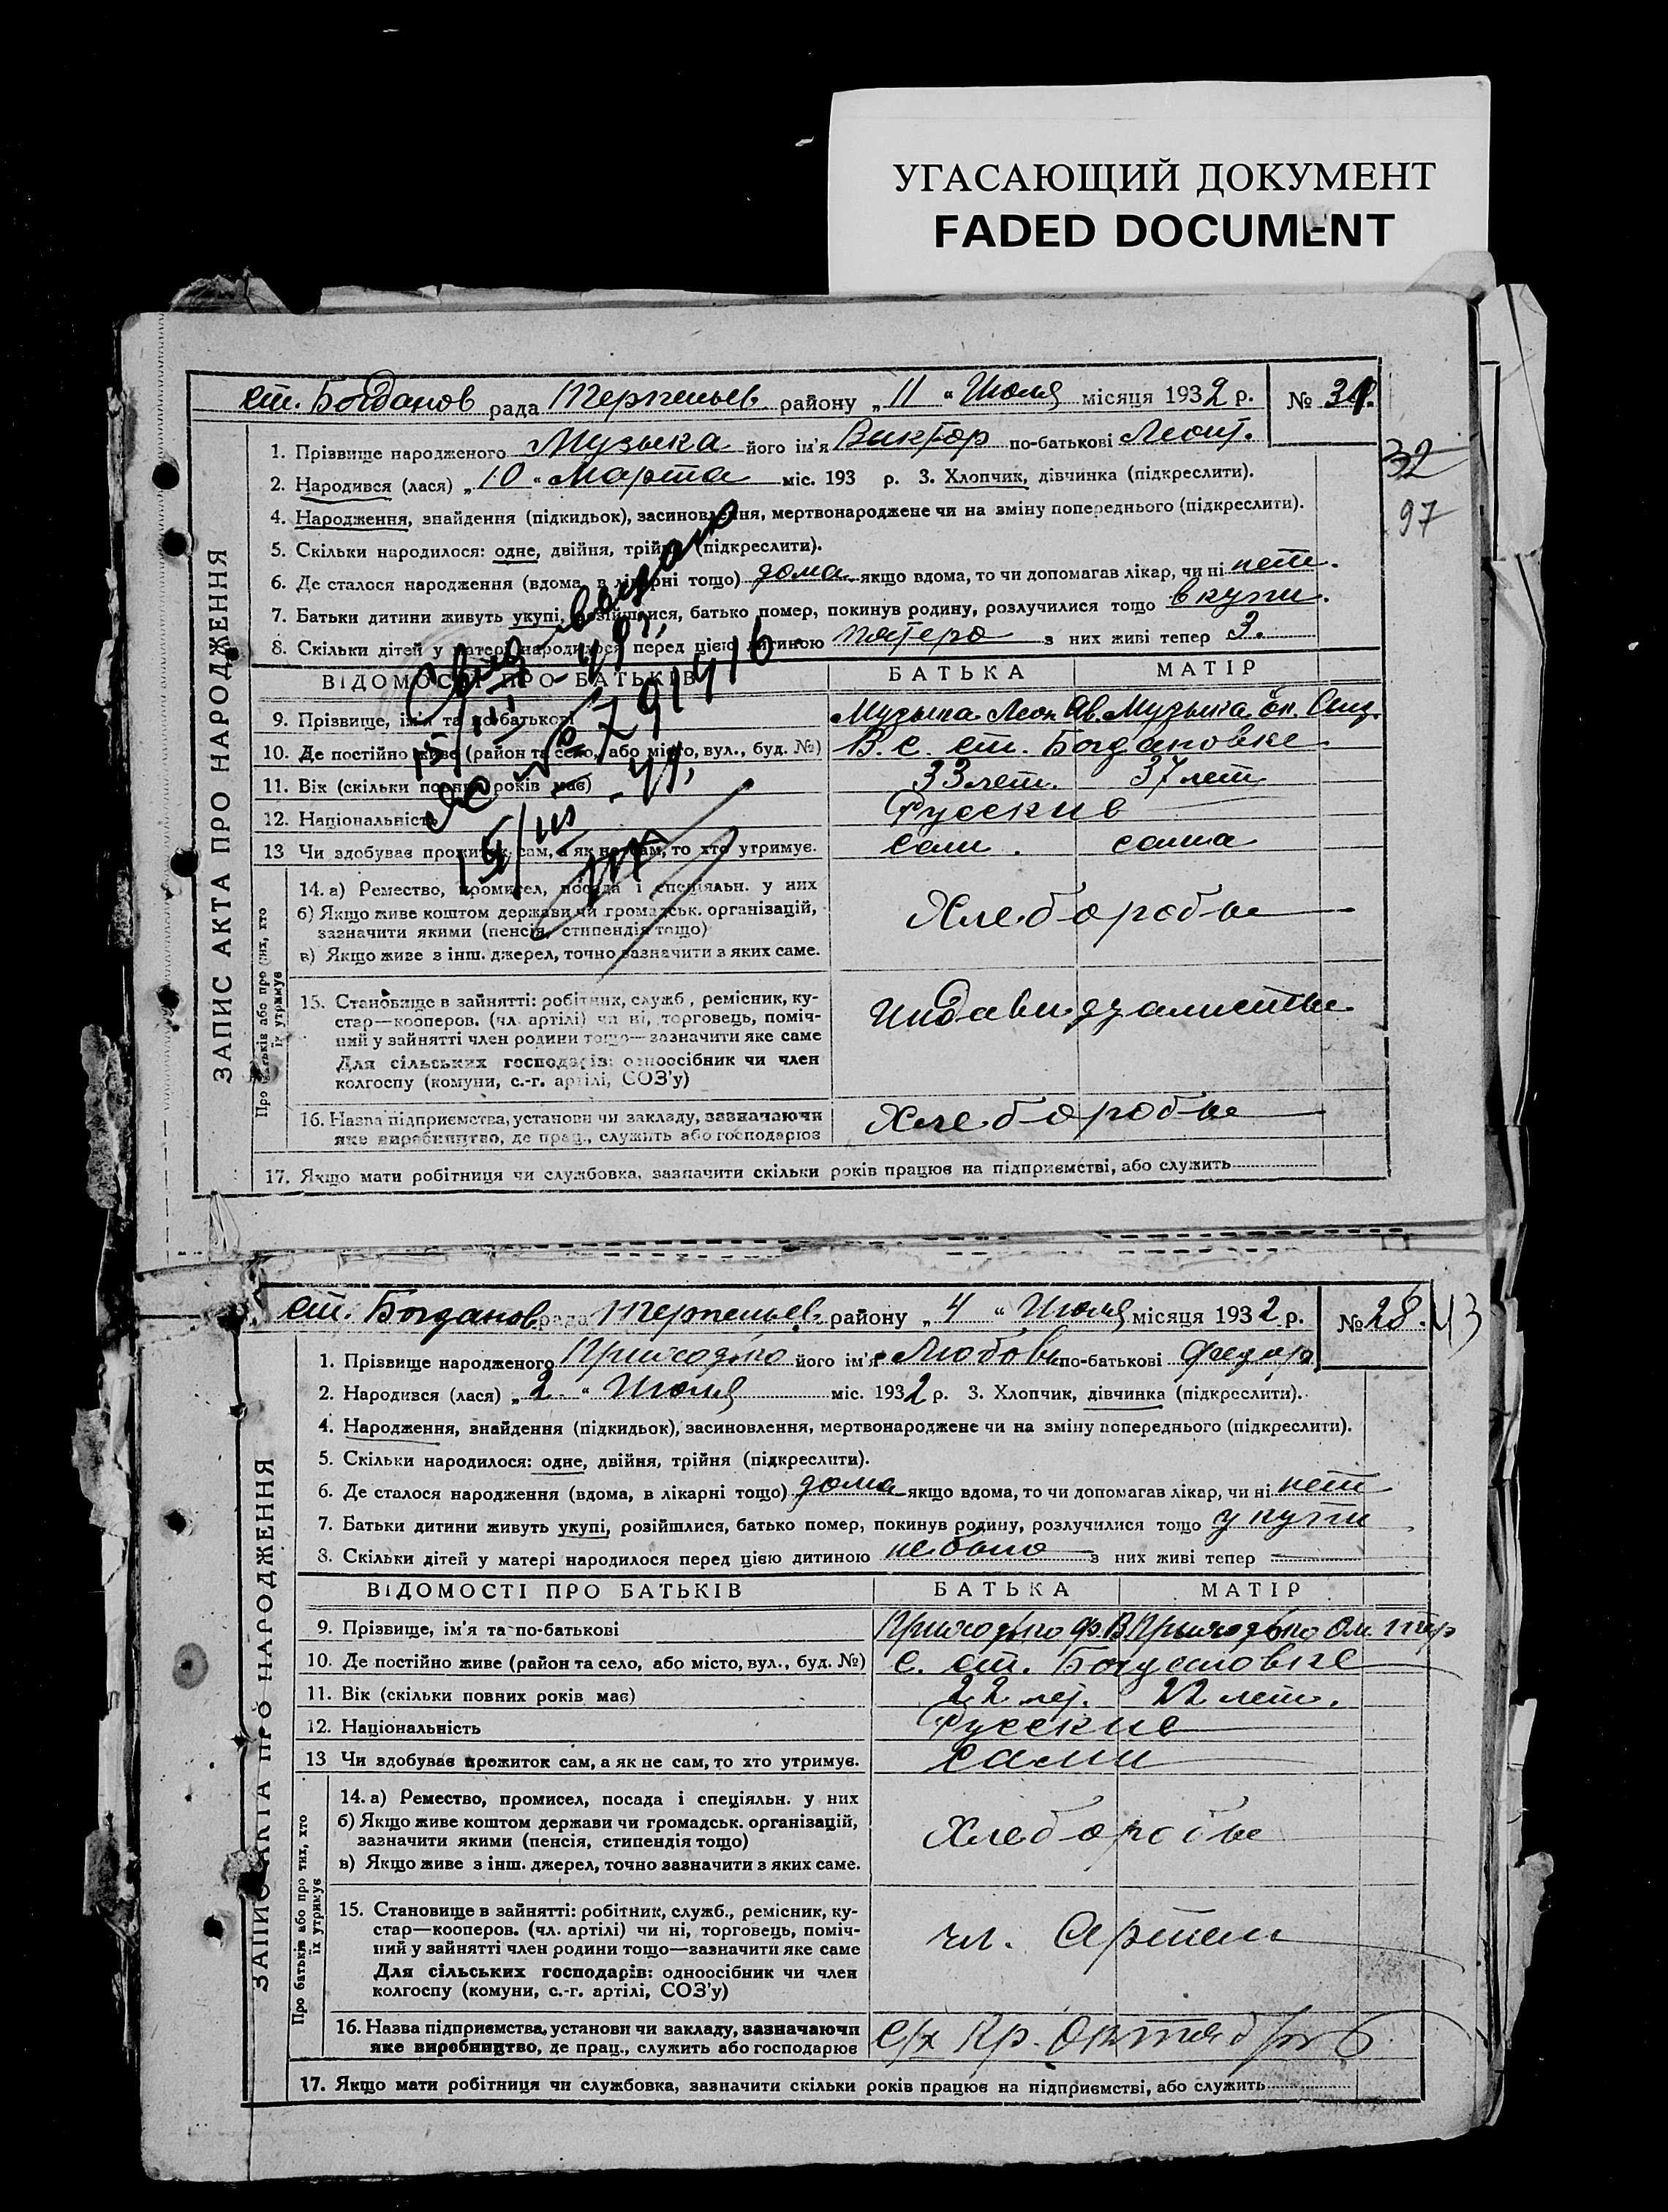 УГАСАЮЩИЙ ДОКУМЕНТ
FADED DOCUMENT
ст. Богданов рада Терпеньев району „11“ Июля місяця 1932 р. №
32
97
ЗАПИС АКТА ПРО НАРОДЖЕННЯ
1. Прізвище народженого Музыка його ім'я Виктор по-батькові Леонт.
2. Народився (лася) „10“ Марта міс. 193 р. 3. Хлопчик, дівчинка (підкреслити).
4. Народження, знайдення (підкидьок), засиновлення, мертвонароджене чи на зміну попереднього (підкреслити).
5. Скільки народилося: одне, двійня, трійня (підкреслити).
6. Де сталося народження (вдома, в лікарні тощо) дома якщо вдома, то чи допомагав лікар, чи ні нет.
7. Батьки дитини живуть укупі, розійшлися, батько помер, покинув родину, розлучилися тощо вкупи.
8. Скільки дітей у матері народилося перед цією дитиною пятеро з них живі тепер 3.
ВІДОМОСТІ ПРО БАТЬКІВ БАТЬКА МАТІР
9. Прізвище, ім'я та по-батькові Музыка Леон. Музыка
10. Де постійно живе (район та село, або місто, вул., буд. №) В. с. ст. Богдановке
11. Вік (скільки повних років має) 33 лет. 37 лет
12. Національність Русские
13 Чи здобуває прожиток сам, а як не сам, то хто утримує. сам. сама
Про батьків або про тих, хто їх утримує
14. а) Ремество, промисел, посада і спеціяльн. у них
б) Якщо живе коштом держави чи громадськ. організацій,
зазначити якими (пенсія, стипендія тощо)
в) Якщо живе з інш. джерел, точно зазначити з яких саме.
Хлеборобы
15. Становище в зайнятті: робітник, служб., ремісник, ку-
стар—кооперов. (чл. артілі) чи ні, торговець, поміч-
ний у зайнятті член родини тощо—зазначити яке саме
Для сільських господарів: одноосібник чи член
колгоспу (комуни, с.-г. артілі, СОЗ'у)
16. Назва підприємства, установи чи закладу, зазначаючи
яке виробництво, де прац., служить або господарює
Хлеборобы
17. Якщо мати робітниця чи службовка, зазначити скільки років працює на підприємстві, або служить
ст. Богданов рада Терпеньев району „4“ Июля місяця 1932 р. № 28.
43
ЗАПИС АКТА ПРО НАРОДЖЕННЯ
1. Прізвище народженого Приходько його ім'я Любовь по-батькові Федор
2. Народився (лася) „2“ Июля міс. 1932 р. 3. Хлопчик, дівчинка (підкреслити).
4. Народження, знайдення (підкидьок), засиновлення, мертвонароджене чи на зміну попереднього (підкреслити).
5. Скільки народилося: одне, двійня, трійня (підкреслити).
6. Де сталося народження (вдома, в лікарні тощо) дома якщо вдома, то чи допомагав лікар, чи ні нет
7. Батьки дитини живуть укупі, розійшлися, батько помер, покинув родину, розлучилися тощо у купи
8. Скільки дітей у матері народилося перед цією дитиною не было з них живі тепер
ВІДОМОСТІ ПРО БАТЬКІВ БАТЬКА МАТІР
9. Прізвище, ім'я та по-батькові Приходько Ф. В Приходько
10. Де постійно живе (район та село, або місто, вул., буд. №) с. ст. Богдановке
11. Вік (скільки повних років має) 22 лет. 22 лет.
12. Національність Русские
13 Чи здобуває прожиток сам, а як не сам, то хто утримує. сами
Про батьків або про тих, хто їх утримує
14. а) Ремество, промисел, посада і спеціяльн. у них
б) Якщо живе коштом держави чи громадськ. організацій,
зазначити якими (пенсія, стипендія тощо)
в) Якщо живе з інш. джерел, точно зазначити з яких саме.
Хлеборобы
15. Становище в зайнятті: робітник, служб., ремісник, ку-
стар—кооперов. (чл. артілі) чи ні, торговець, поміч-
ний у зайнятті член родини тощо—зазначити яке саме
Для сільських господарів: одноосібник чи член
колгоспу (комуни, с.-г. артілі, СОЗ'у)
чл. Артели
16. Назва підприємства, установи чи закладу, зазначаючи
яке виробництво, де прац., служить або господарює
с/х Кр. Октябрь
17. Якщо мати робітниця чи службовка, зазначити скільки років працює на підприємстві, або служить